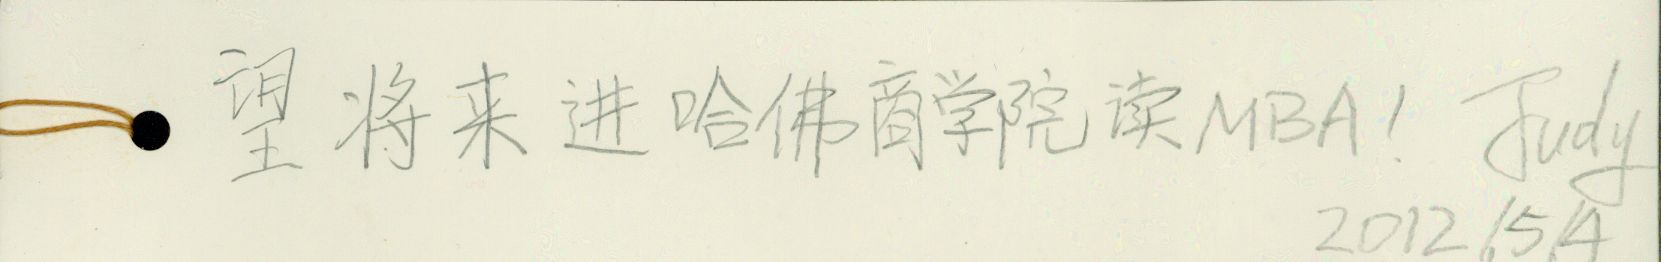 望将来进哈佛商学院读MBA! Judy
2012/5/4